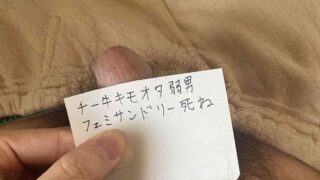 チー牛キモオタ弱男
フェミサンドリー死ね